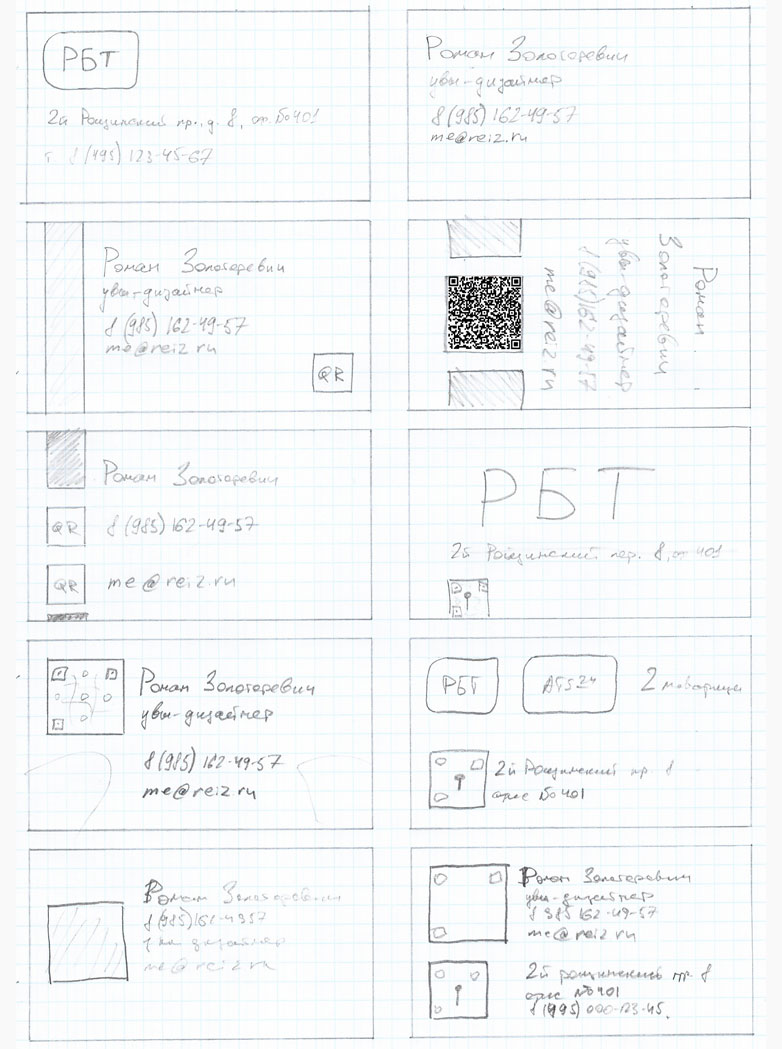 РБТ
2й Рощинский пр. д. 8, оф. №401
т. 8 (495) 123-45-67
Роман Золоторевич
увы-дизайнер
8 (985) 162-49-57
me@reiz.ru
Роман Золоторевич
увы-дизайнер
8 (985) 162-49-57
me@reiz.ru
QR
Роман
Золоторевич
увы-дизайнер
8 (985) 162-49-57
me@reiz.ru
Роман Золоторевич
QR
8 (985) 162-49-57
QR
me@reiz.ru
РБТ
2й Рощинский пер. 8, оф 401
Роман Золоторевич
увы-дизайнер
8 (985) 162-49-57
me@reiz.ru
РБТ
ATS24
2
2й Рощинский пр. 8
офис №401
Роман Золоторевич
8 (985) 162-4957
дизайнер
me@reiz.ru
Роман Золоторевич
увы-дизайнер
8 985 162-49-57
me@reiz.ru
2й рощинский пр. 8
офис №401
8 (495) 000-123-45.